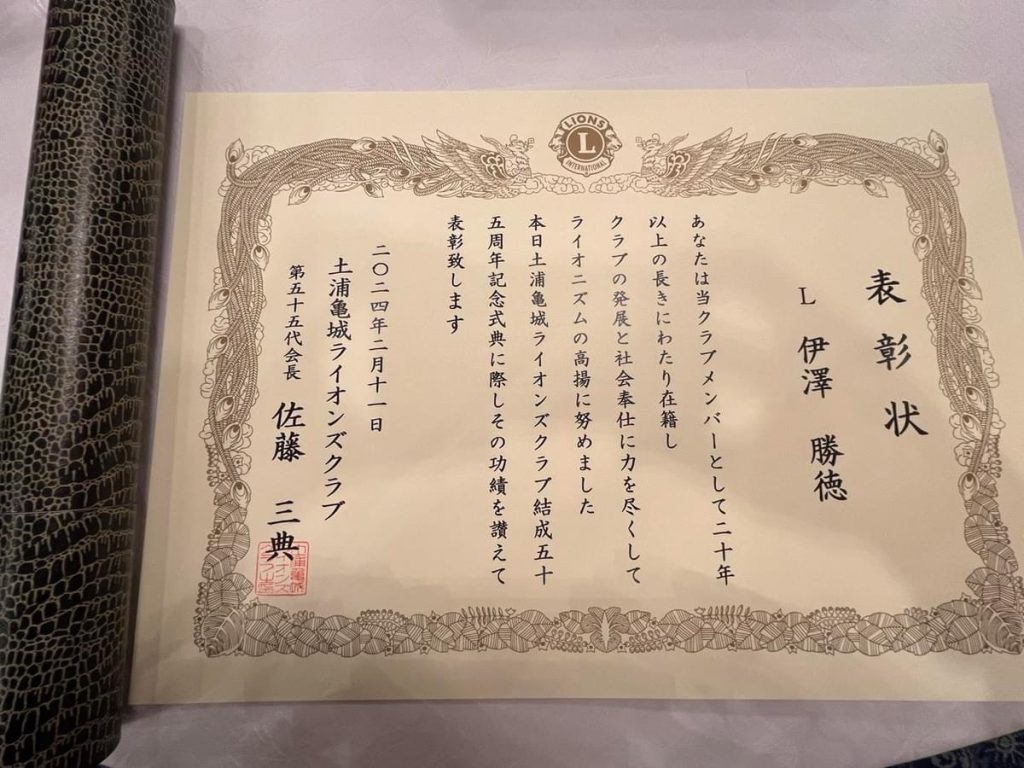 LIONS
L
INTERNATIONAL
表彰状
L 伊澤 勝徳
あなたは当クラブメンバーとして二十年
以上の長きにわたり在籍し
クラブの発展と社会奉仕に力を尽くして
ライオニズムの高揚に努めました
本日土浦亀城ライオンズクラブ結成五十
五周年記念式典に際しその功績を讃えて
表彰致します
二〇二四年二月十一日
土浦亀城ライオンズクラブ
第五十五代会長 佐藤 三典